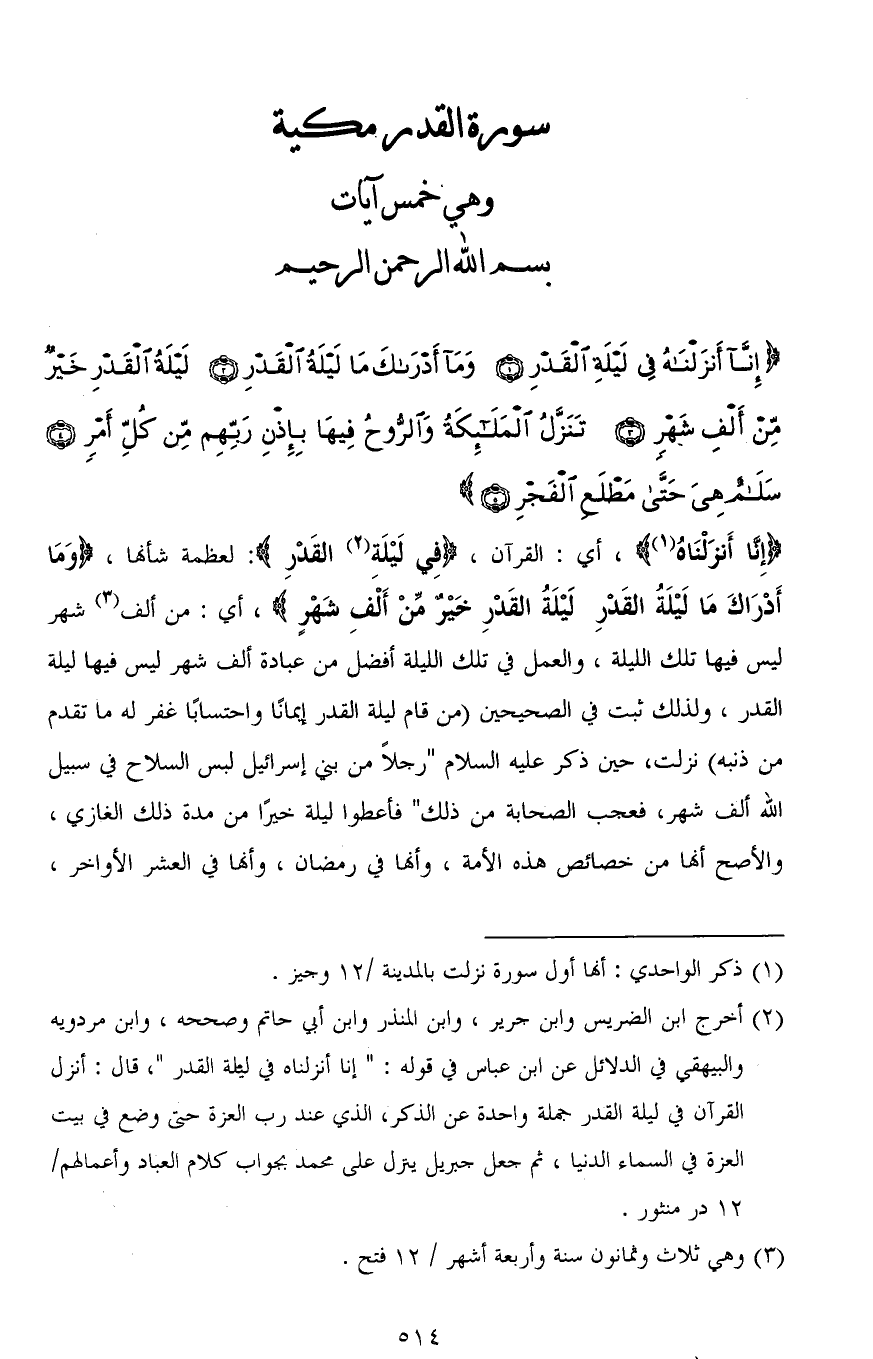 سورة القدر مكية
وهي خمس آيات
بسم الله الرحمن الرحيم
﴿ إِنَّآ أَنزَلْنَٰهُ فِى لَيْلَةِ ٱلْقَدْرِ ۝١ وَمَآ أَدْرَىٰكَ مَا لَيْلَةُ ٱلْقَدْرِ ۝٢ لَيْلَةُ ٱلْقَدْرِ خَيْرٌ
مِّنْ أَلْفِ شَهْرٍ ۝٣ تَنَزَّلُ ٱلْمَلَٰٓئِكَةُ وَٱلرُّوحُ فِيهَا بِإِذْنِ رَبِّهِم مِّن كُلِّ أَمْرٍ ۝٤
سَلَٰمٌ هِىَ حَتَّىٰ مَطْلَعِ ٱلْفَجْرِ ۝٥ ﴾
﴿إِنَّا أَنزَلْنَاهُ(١)﴾ ، أي : القرآن ، ﴿فِي لَيْلَةِ(٢) القَدْرِ ﴾: لعظمة شأنها ، ﴿وَمَا
أَدْرَاكَ مَا لَيْلَةُ القَدْرِ لَيْلَةُ القَدْرِ خَيْرٌ مِّنْ أَلْفِ شَهْرٍ ﴾ ، أي : من ألف(٣) شهر
ليس فيها تلك الليلة ، والعمل في تلك الليلة أفضل من عبادة ألف شهر ليس فيها ليلة
القدر ، ولذلك ثبت في الصحيحين (من قام ليلة القدر إيمانًا واحتسابًا غفر له ما تقدم
من ذنبه) نزلت، حين ذكر عليه السلام "رجلاً من بني إسرائيل لبس السلاح في سبيل
الله ألف شهر، فعجب الصحابة من ذلك" فأعطوا ليلة خيرًا من مدة ذلك الغازي ،
والأصح أنها من خصائص هذه الأمة ، وأنها في رمضان ، وأنها في العشر الأواخر ،
(١) ذكر الواحدي : أنها أول سورة نزلت بالمدينة /١٢ وجيز .
(٢) أخرج ابن الضريس وابن جرير ، وابن المنذر وابن أبي حاتم وصححه ، وابن مردويه
والبيهقي في الدلائل عن ابن عباس في قوله : " إنا أنزلناه في ليلة القدر "، قال : أنزل
القرآن في ليلة القدر جملة واحدة عن الذكر، الذي عند رب العزة حتى وضع في بيت
العزة في السماء الدنيا ، ثم جعل جبريل ينزل على محمد بجواب كلام العباد وأعمالهم/
١٢ در منثور .
(٣) وهي ثلاث وثمانون سنة وأربعة أشهر / ١٢ فتح .
٥١٤